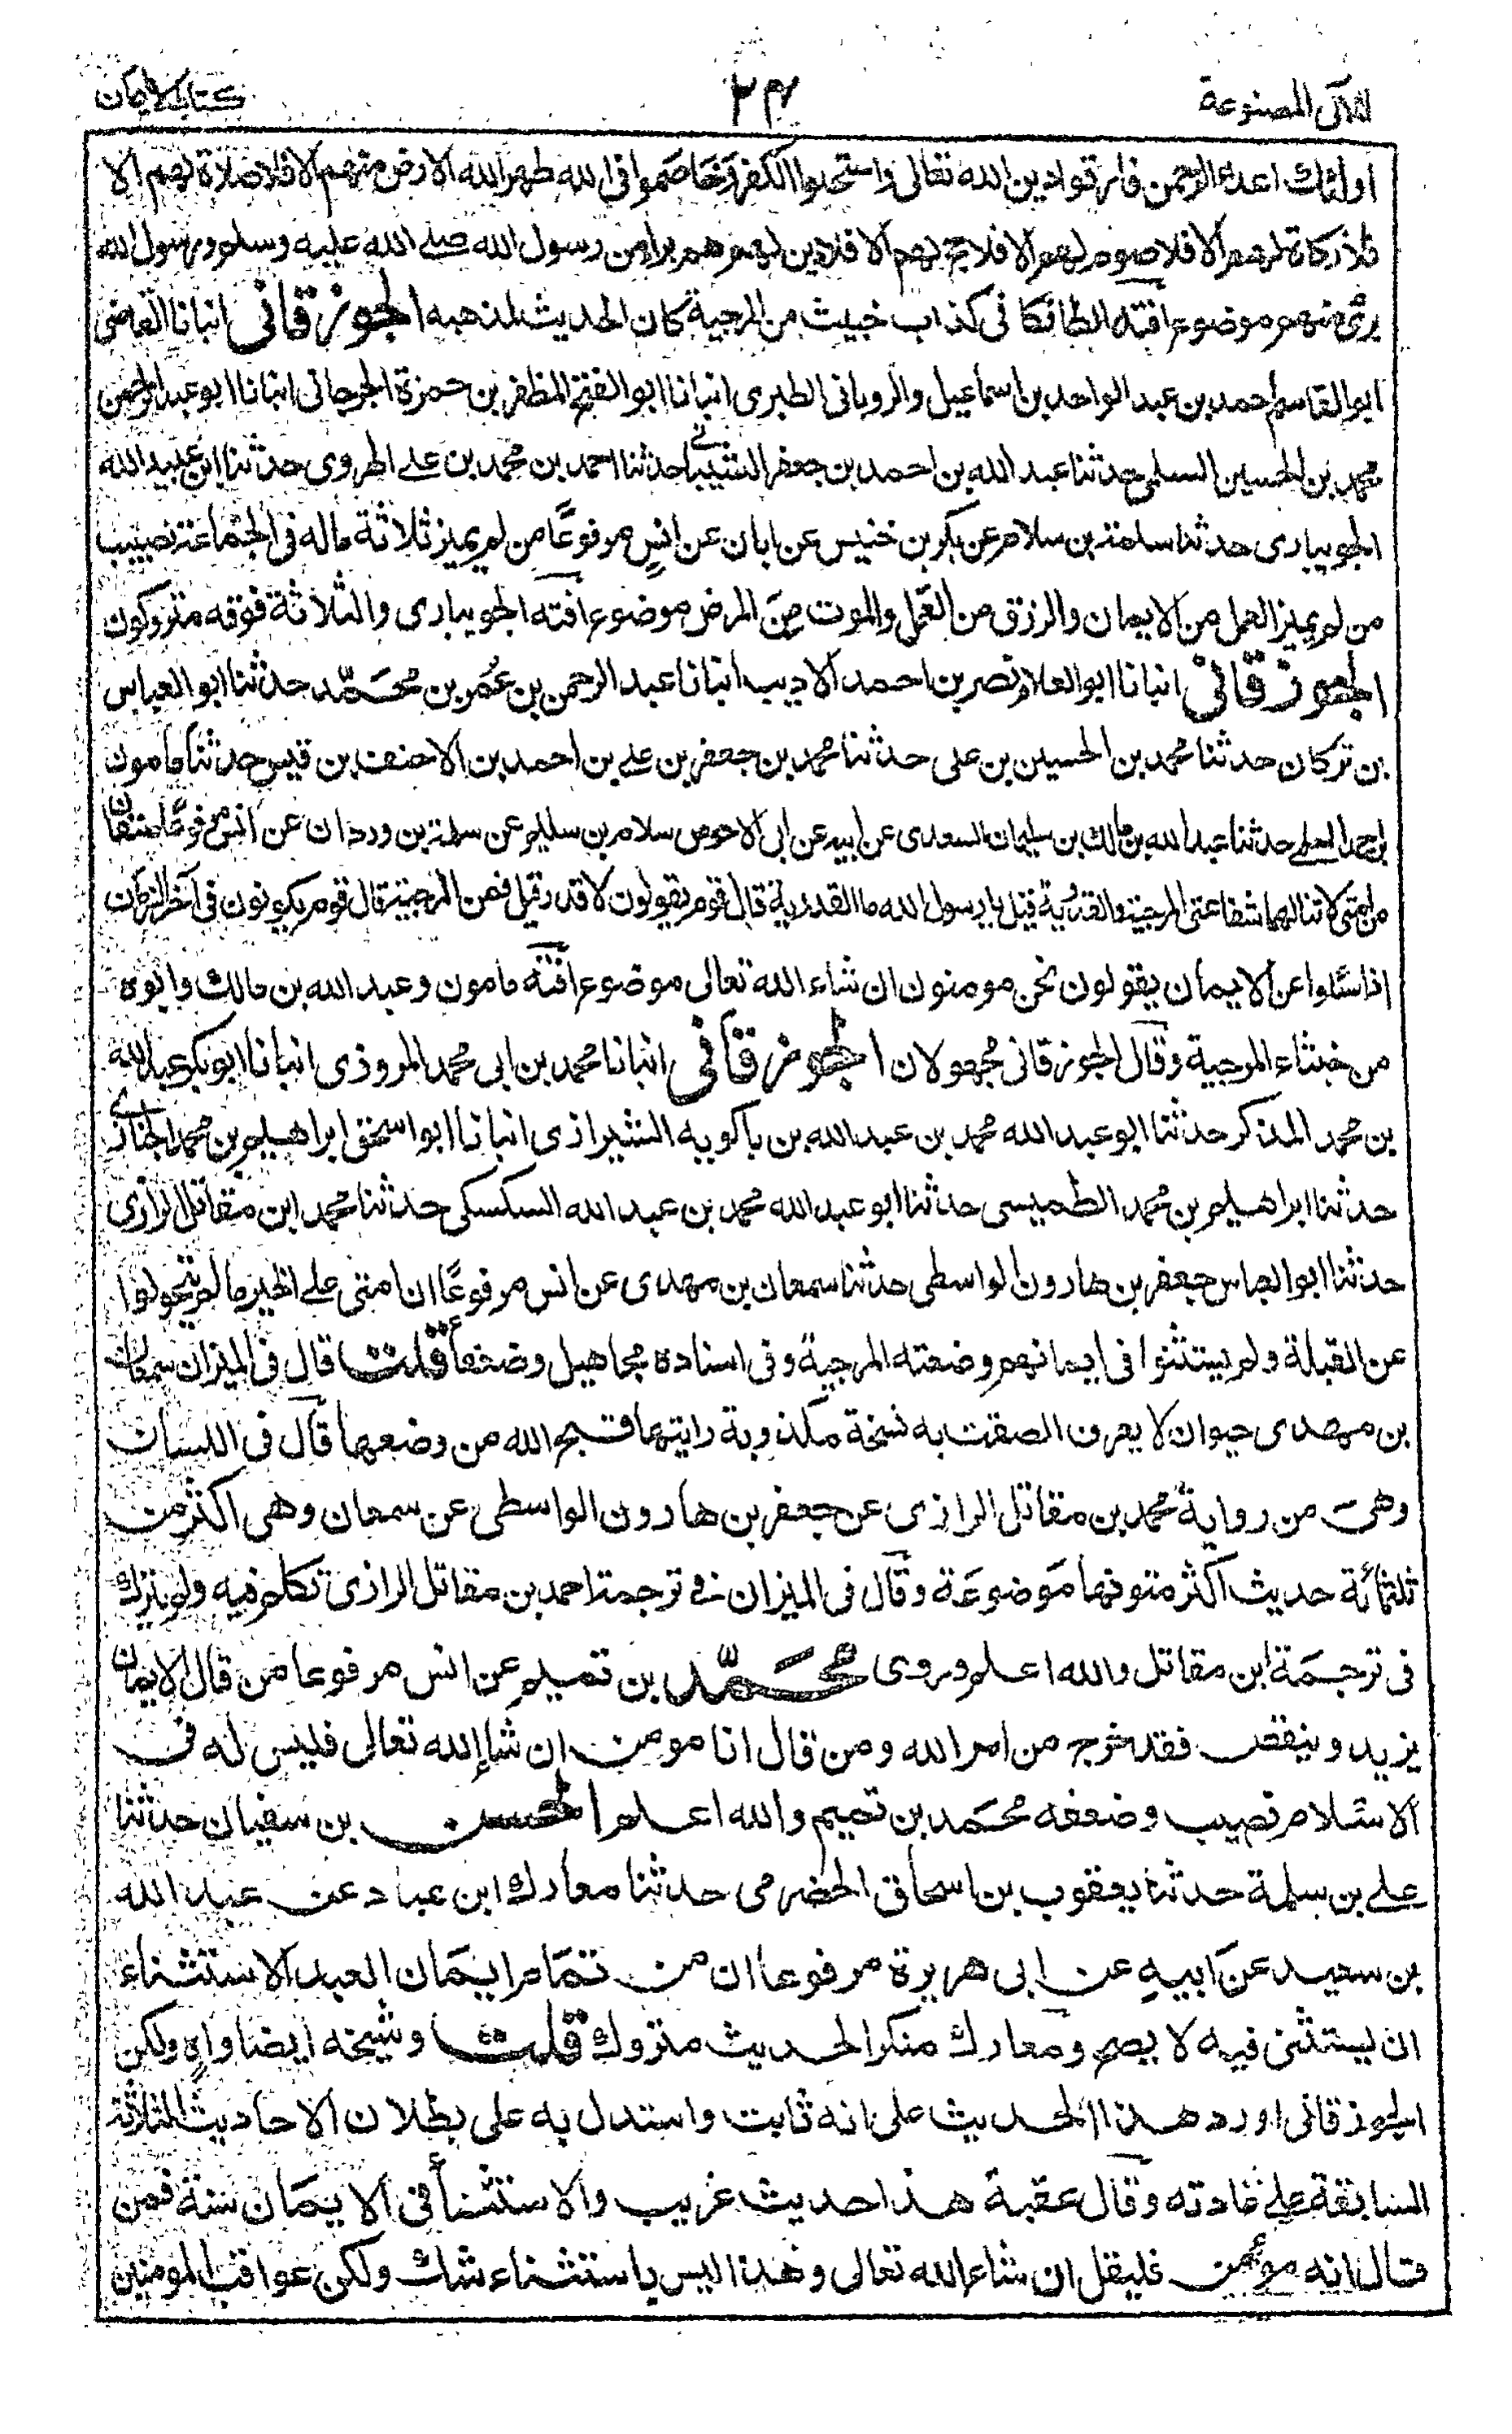 اللآلى المصنوعة
٢٣
كتاب الايمان
اولئك اعداء الرحمن فارقوا دين الله تعالى واستحلوا الكفر وخاصموا فى الله طهر الله الارض منهم الا فلا صلاة لهم الا
فلا زكاة لهم الا فلا صوم لهم الا فلا حج لهم الا فلا دين لهم هم برآمن رسول الله صلے الله عليه وسلم ورسول الله
برئ منهم موضوع افته الطائكانى كذاب خبيث من المرجية كان الحديث لمذهبه الجوزقانى انبانا القاضى
ابو القاسم احمد بن عبد الواحد بن اسماعيل والرويانى الطبرى انبانا ابو الفتح المظفر بن حمزة الجرجانى انبانا ابو عبد الرحمن
محمد بن الحسين السلمى حدثنا عبد الله بن احمد بن جعفر الشيبانے حدثنا احمد بن محمد بن علے الهروى حدثنا ابن عبيد الله
الجويبارى حدثنا سلمة بن سلام عن بكر بن خنيس عن ابان عن انسٍ مرفوعًا من لم يميز ثلاثة ماله فى الجماعة نصيب
من لم يميز العمل من الايمان والرزق من العمل والموت من المرض موضوع افته الجويبارى والثلاثة فوقه متروكون
الجوزقانى انبانا ابو العلاء نصر بن احمد الاديب انبانا عبد الرحمن بن عُمر بن محمّد حدثنا ابو العباس
بن تركان حدثنا محمد بن الحسين بن على حدثنا محمد بن جعفر بن علے بن احمد بن الاحنف بن قيس حدثنا مامون
بن احمد السلمے حدثنا عبد الله بن مالك بن سليمان السعدى عن ابيه عن ابى الاحوص سلام بن سليم عن سلمة بن وردان عن انس مرفوعًا صنفان
من امتى لا تنالهما شفاعتى المرجية والقدرية قيل يا رسول الله ما القدرية قال قوم يقولون لا قدر قيل فمن المرجية قال قوم يكونون فى آخر الزمان
اذا سئلوا عن الايمان يقولون نحن مومنون ان شاء الله تعالى موضوع افته مامون وعبد الله بن مالك وابوه
من خبثاء المرجية وقال الجوزقانى مجهولان الجوزقانى انبانا محمد بن ابى محمد المروذى انبانا ابو بكر عبد الله
بن محمد المذكر حدثنا ابو عبد الله محمد بن عبد الله بن باكويه الشيرازى انبانا ابو اسحق ابراهيم بن محمد
حدثنا ابراهيم بن محمد الطميسى حدثنا ابو عبد الله محمد بن عبد الله السكسكى حدثنا محمد ابن مقاتل الرازى
حدثنا ابو العباس جعفر بن هارون الواسطى حدثنا سمعان بن مهدى عن انس مرفوعًا ان امتى علے الخير ما لم يتحولوا
عن القبلة ولم يستثنوا فى ايمانهم وضعته المرجية وفى اسناده مجاهيل وضعفأ قلت قال فى الميزان سمعان
بن مهدى حيوان لا يعرف الصقت به نسخة مكذوبة رايتها قبح الله من وضعها قال فى اللسان
وهى من رواية محمد بن مقاتل الرازى عن جعفر بن هارون الواسطى عن سمعان وهى اكثر من
ثلثمائة حديث اكثر متونها موضوعة وقال فى الميزان فے ترجمة احمد بن مقاتل الرازى تكلم فيه ولم يترك
فى ترجمة ابن مقاتل والله اعلم وروى محمّد بن تميم عن انس مرفوعا من قال الايمان
يزيد وينقص فقد خرج من امر الله ومن قال انا مومن ان شاء الله تعالى فليس له فى
الاسلام نصيب وضعفه محمد بن تميم والله اعلم الحسن بن سفيان حدثنا
علے بن سلمة حدثنا يعقوب بن اسحاق الحضرمى حدثنا معارك ابن عباد عن عبد الله
بن سعيد عن ابيهِ عن ابى هريرة مرفوعا ان من تمام ايمان العبد الاستثناء
ان يستثنى فيه لا يصح ومعارك منكر الحديث متروك قلت وشيخه ايضا واهٍ ولكن
الجوزقانى اورد هذا الحديث على انه ثابت واستدل به على بطلان الاحاديث الثلاثة
السابقة علے عادته وقال عقبة هذا حديث غريب والاستثنأ فى الايمان سنة فمن
قال انه مومن فليقل ان شاء الله تعالى وهذا ليس باستثناء شك ولكن عواقب المومنين